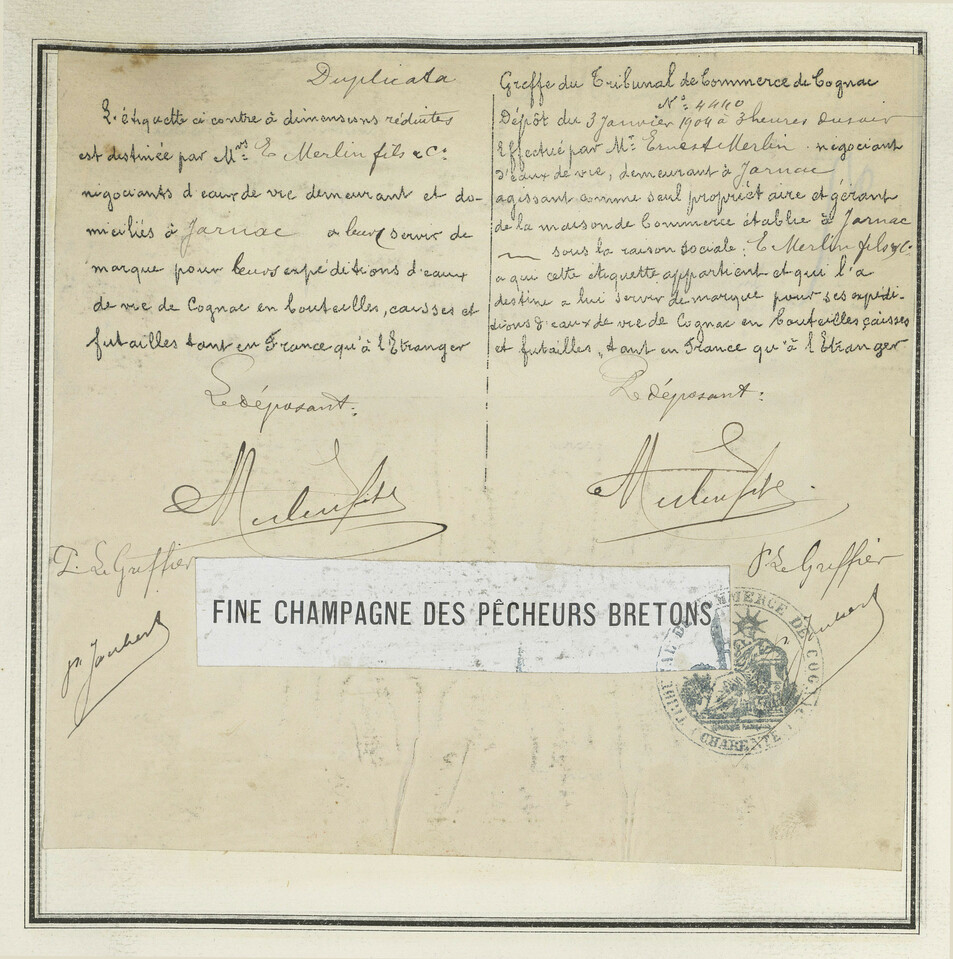 Duplicata
L'étiquette ci contre à dimensions réduites
est destinée par Mrs E Merlin fils & Co
négociants d'eaux de vie demeurant et do-
miciliés à Jarnac a leur servir de
marque pour leurs expéditions d'eaux
de vie de Cognac en bouteilles, caisses et
futailles tant en France qu'à l'Etranger
Le déposant:
Merlin fils
P. Le Greffier
Joubert
Greffe du Tribunal de Commerce de Cognac
No 4440
Dépôt du 3 Janvier 1904 à 3 heures du soir
Effectué par Mr Ernest Merlin négociant
d'eaux de vie, demeurant à Jarnac
agissant comme seul propriétaire et gérant
de la maison de Commerce établie à Jarnac
sous la raison sociale: E Merlin fils & Co
a qui cette étiquette appartient et qui l'a
destine a lui servir de marque pour ses expédi-
tions d'eaux de vie de Cognac en bouteilles caisses
et futailles, tant en France qu'à l'Etranger
Le déposant:
Merlin fils
P. Le Greffier
Joubert
FINE CHAMPAGNE DES PÊCHEURS BRETONS
TRIBUNAL DE COMMERCE DE COGNAC
(CHARENTE)